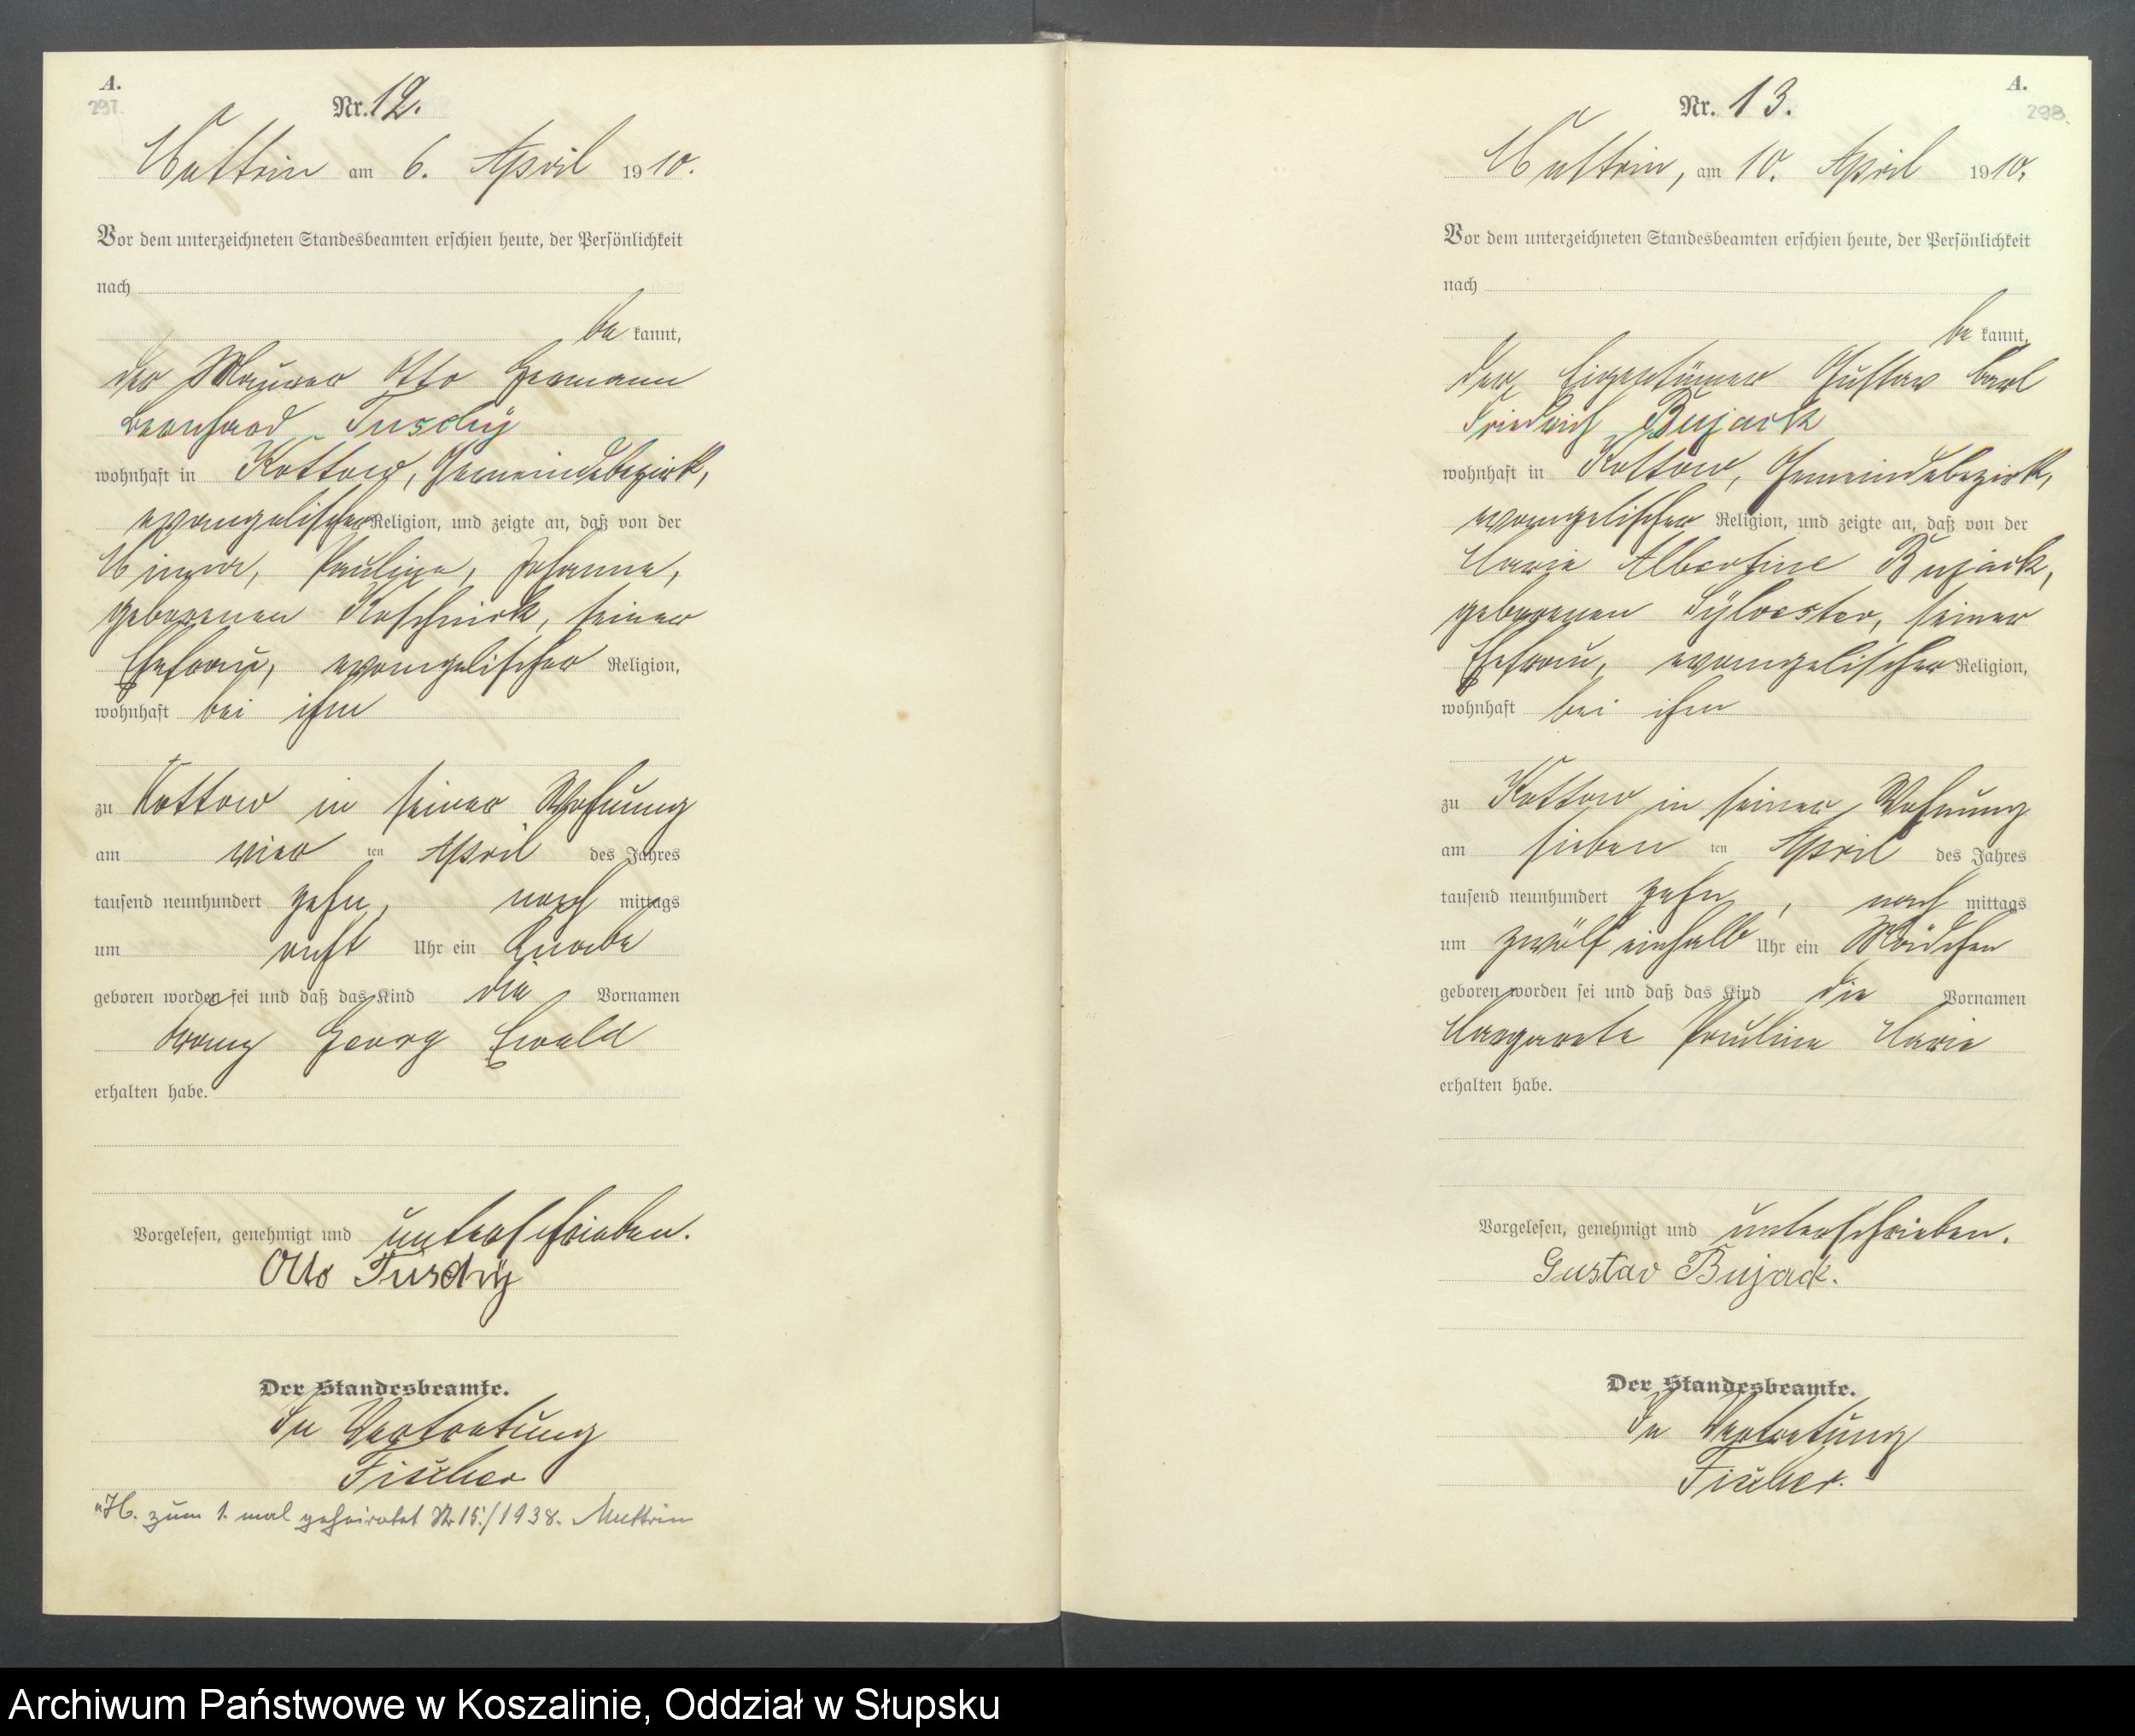 A.
297.
Nr. 12.
Muttrin am 6. April 1910.
Vor dem unterzeichneten Standesbeamten erschien heute, der Persönlichkeit
nach
be kannt,
der Maurer Otto Hermann
Leonhard Tuschy
wohnhaft in Kottow, Gemeindebezirk,
evangelischer Religion, und zeigte an, daß von der
Minna, Pauline, Johanna,
geborenen Koschnick, seiner
Ehefrau, evangelischer Religion,
wohnhaft bei ihm
zu Kottow in seiner Wohnung
am vier ten April des Jahres
tausend neunhundert zehn, nach mittags
um acht Uhr ein Knabe
geboren worden sei und daß das Kind die Vornamen
Franz Georg Ewald
erhalten habe.
Vorgelesen, genehmigt und unterschrieben.
Otto Tuschy
Der Standesbeamte.
In Vertretung
Fischer
H. zum 1. mal geheiratet Nr 15./1938. Muttrin
A.
298.
Nr. 13.
Muttrin, am 10. April 1910.
Vor dem unterzeichneten Standesbeamten erschien heute, der Persönlichkeit
nach
be kannt,
der Eigentümer Gustav Carl
Friedrich Bujack
wohnhaft in Kottow, Gemeindebezirk,
evangelischer Religion, und zeigte an, daß von der
Marie Albertine Bujack,
geborenen Sylvester, seiner
Ehefrau, evangelischer Religion,
wohnhaft bei ihm
zu Kottow in seiner Wohnung
am sieben ten April des Jahres
tausend neunhundert zehn, nach mittags
um zwölf einhalb Uhr ein Mädchen
geboren worden sei und daß das Kind die Vornamen
Margarete Pauline Marie
erhalten habe.
Vorgelesen, genehmigt und unterschrieben.
Gustav Bujack.
Der Standesbeamte.
In Vertretung
Fischer.
Archiwum Państwowe w Koszalinie, Oddział w Słupsku